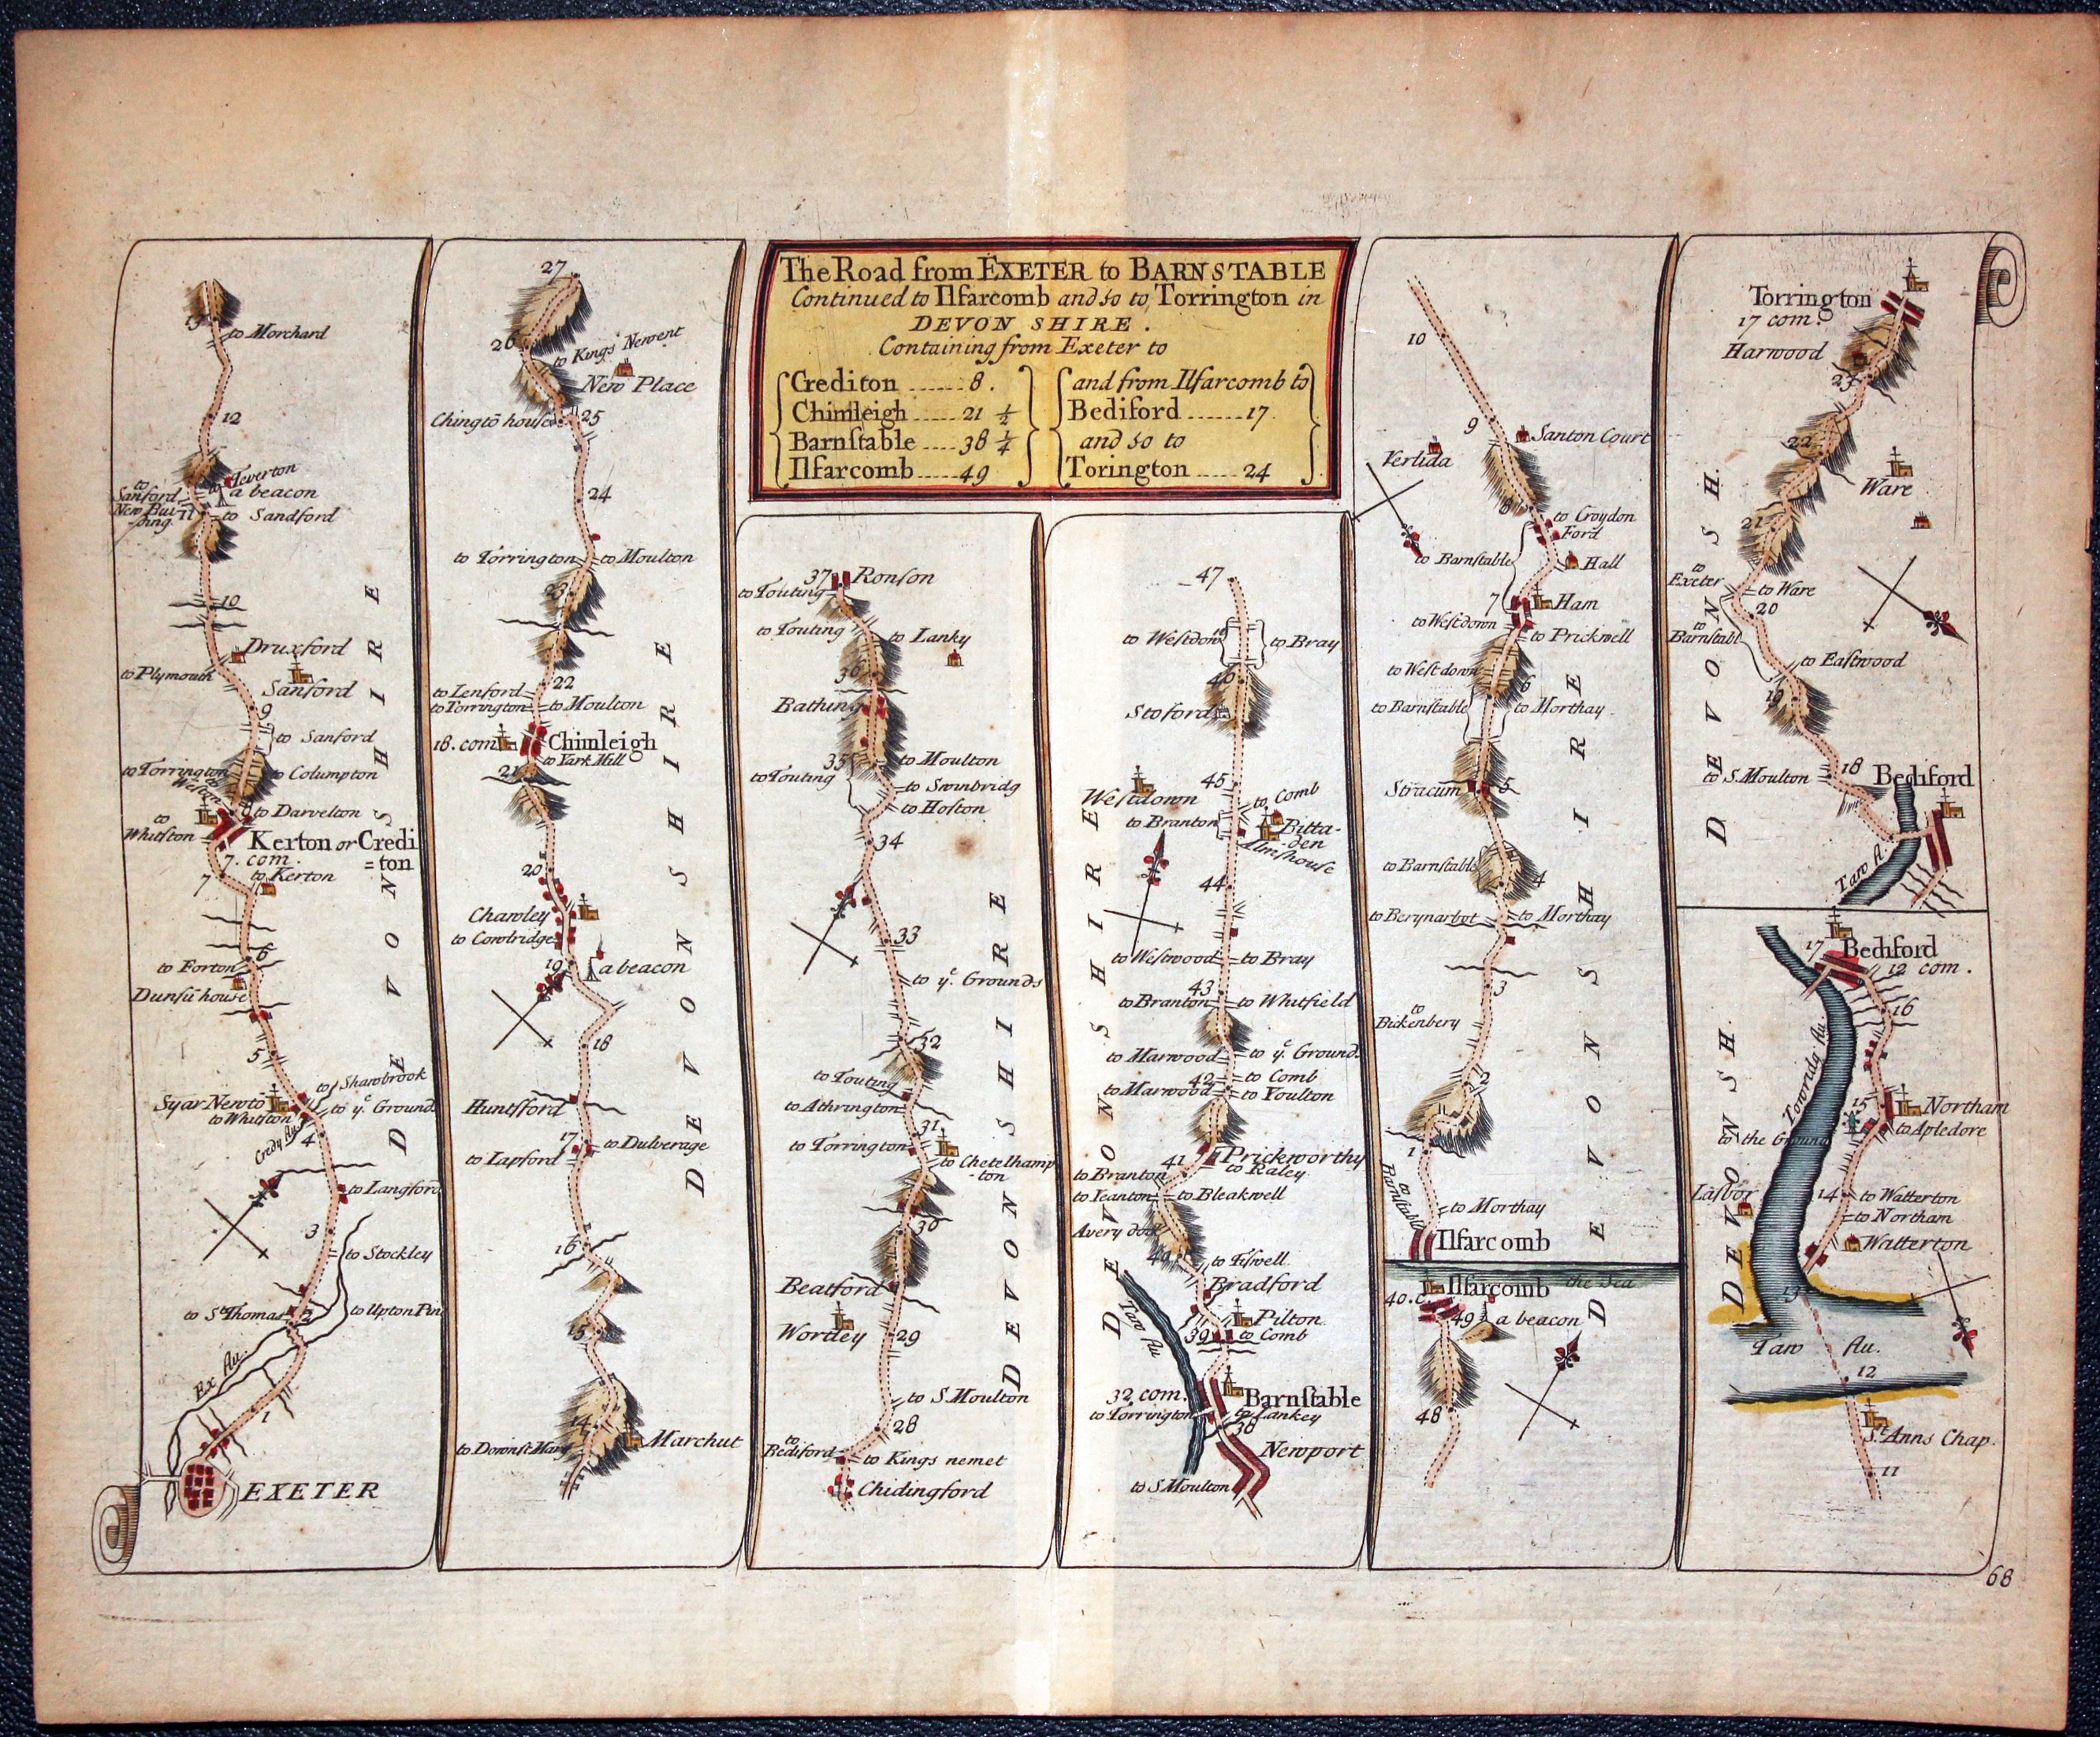 The Road from EXETER to BARNSTABLE
Continued to Ilfarcomb and so to Torrington in
DEVON SHIRE.
Containing from Exeter to
Crediton ...... 8.
Chimleigh ..... 21 ½
Barnſtable .... 38 ¼
Ilfarcomb ..... 49
and from Ilfarcomb to
Bediford ...... 17
and so to
Torington ..... 24
13
to Morchard
12
to Teverton
a beacon
to
Sanford
New Bui-
-ding
11
to Sandford
10
Druxford
to Plymouth
Sanford
9
to Sanford
to Torrington
to Columpton
to Weston
8
to Darvelton
to
Whitſton
Kerton or Credi
=ton
7. com.
7
to Kerton
6
to Forton
Dunſū houſe
5
to Shawbrook
Syar Newtō
to yᵉ Ground
to Whitſton
4
Credy Au.
to Langford
3
to Stockley
to Sᵗ Thomas
2
to Upton Pin
Ex Au.
1
EXETER
DEVONSHIRE
27
26
to Kings Newent
New Place
Chingtō houſe
25
24
to Torrington
to Moulton
23
22
to Lenford
to Torrington
to Moulton
18. com
Chimleigh
to Yark Mill
21
20
Chawley
to Cowlridge
19
a beacon
18
Huntſford
17
to Dulverage
to Lapford
16
15
14
to Down ſt Mary
Marchut
DEVONSHIRE
37
Ronſon
to Touting
to Touting
to Lanky
36
Bathing
35
to Moulton
to Touting
to Swinbridg
to Hoſton
34
33
to yᵉ Grounds
32
to Touting
to Athrington
31
to Torrington
to Chetelhamp
-ton
30
Beatford
Wortley
29
to S. Moulton
28
to
Bediford
to Kings nemet
Chidingford
DEVONSHIRE
47
to Weſtdown
to Bray
46
Stoford
45
Weſtdown
to Comb
to Branton
Bitta-
den
Almſhouse
44
to Weſtwood
to Bray
43
to Branton
to Whitfield
to Marwood
to yᵉ Ground
42
to Comb
to Marwood
to Youlton
41
Prickworthy
to Raley
to Branton
to Ieanton
to Bleakwell
Avery dock
40
to Fiſwell
Bradford
Pilton
39
to Comb
Taw Au
32 com.
Barnſtable
to Torrington
to Lankey
38
Newport
to S Moulton
DEVONSHIRE
10
9
Santon Court
Verlida
8
to Croydon
Ford
to Barnſtable
Hall
7
Ham
to Weſtdown
to Prickwell
to Weſt down
6
to Barnſtable
to Morthay
Stracum
5
to Barnſtable
4
to Berynarbot
to Morthay
3
to
Bickenbery
2
1
to Barnſtable
to Morthay
Ilfarcomb
Ilfarcomb
the Sea
40. c.
49
a beacon
48
DEVONSHIRE
Torrington
17 com.
Harwood
23
22
Ware
21
to
Exeter
to Ware
20
to
Barnſtabl
to Eaſtwood
19
to S. Moulton
18
Bediford
Taw Au.
DEVONSH.
17
Bediford
12 com.
16
Towridg Au.
15
Northam
to the Ground
to Apledore
Lasbor
14
to Watterton
to Northam
Watterton
13
Taw Au.
12
Sᵗ Anns Chap.
11
DEVONSH.
68